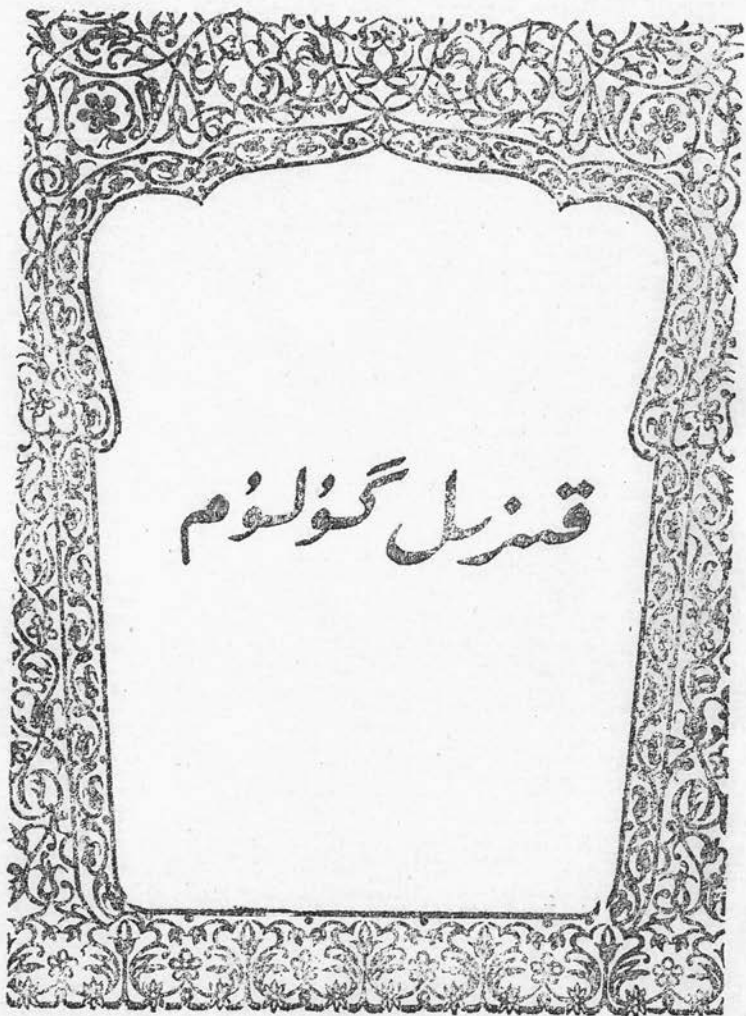 قىزىل گۈلۈم